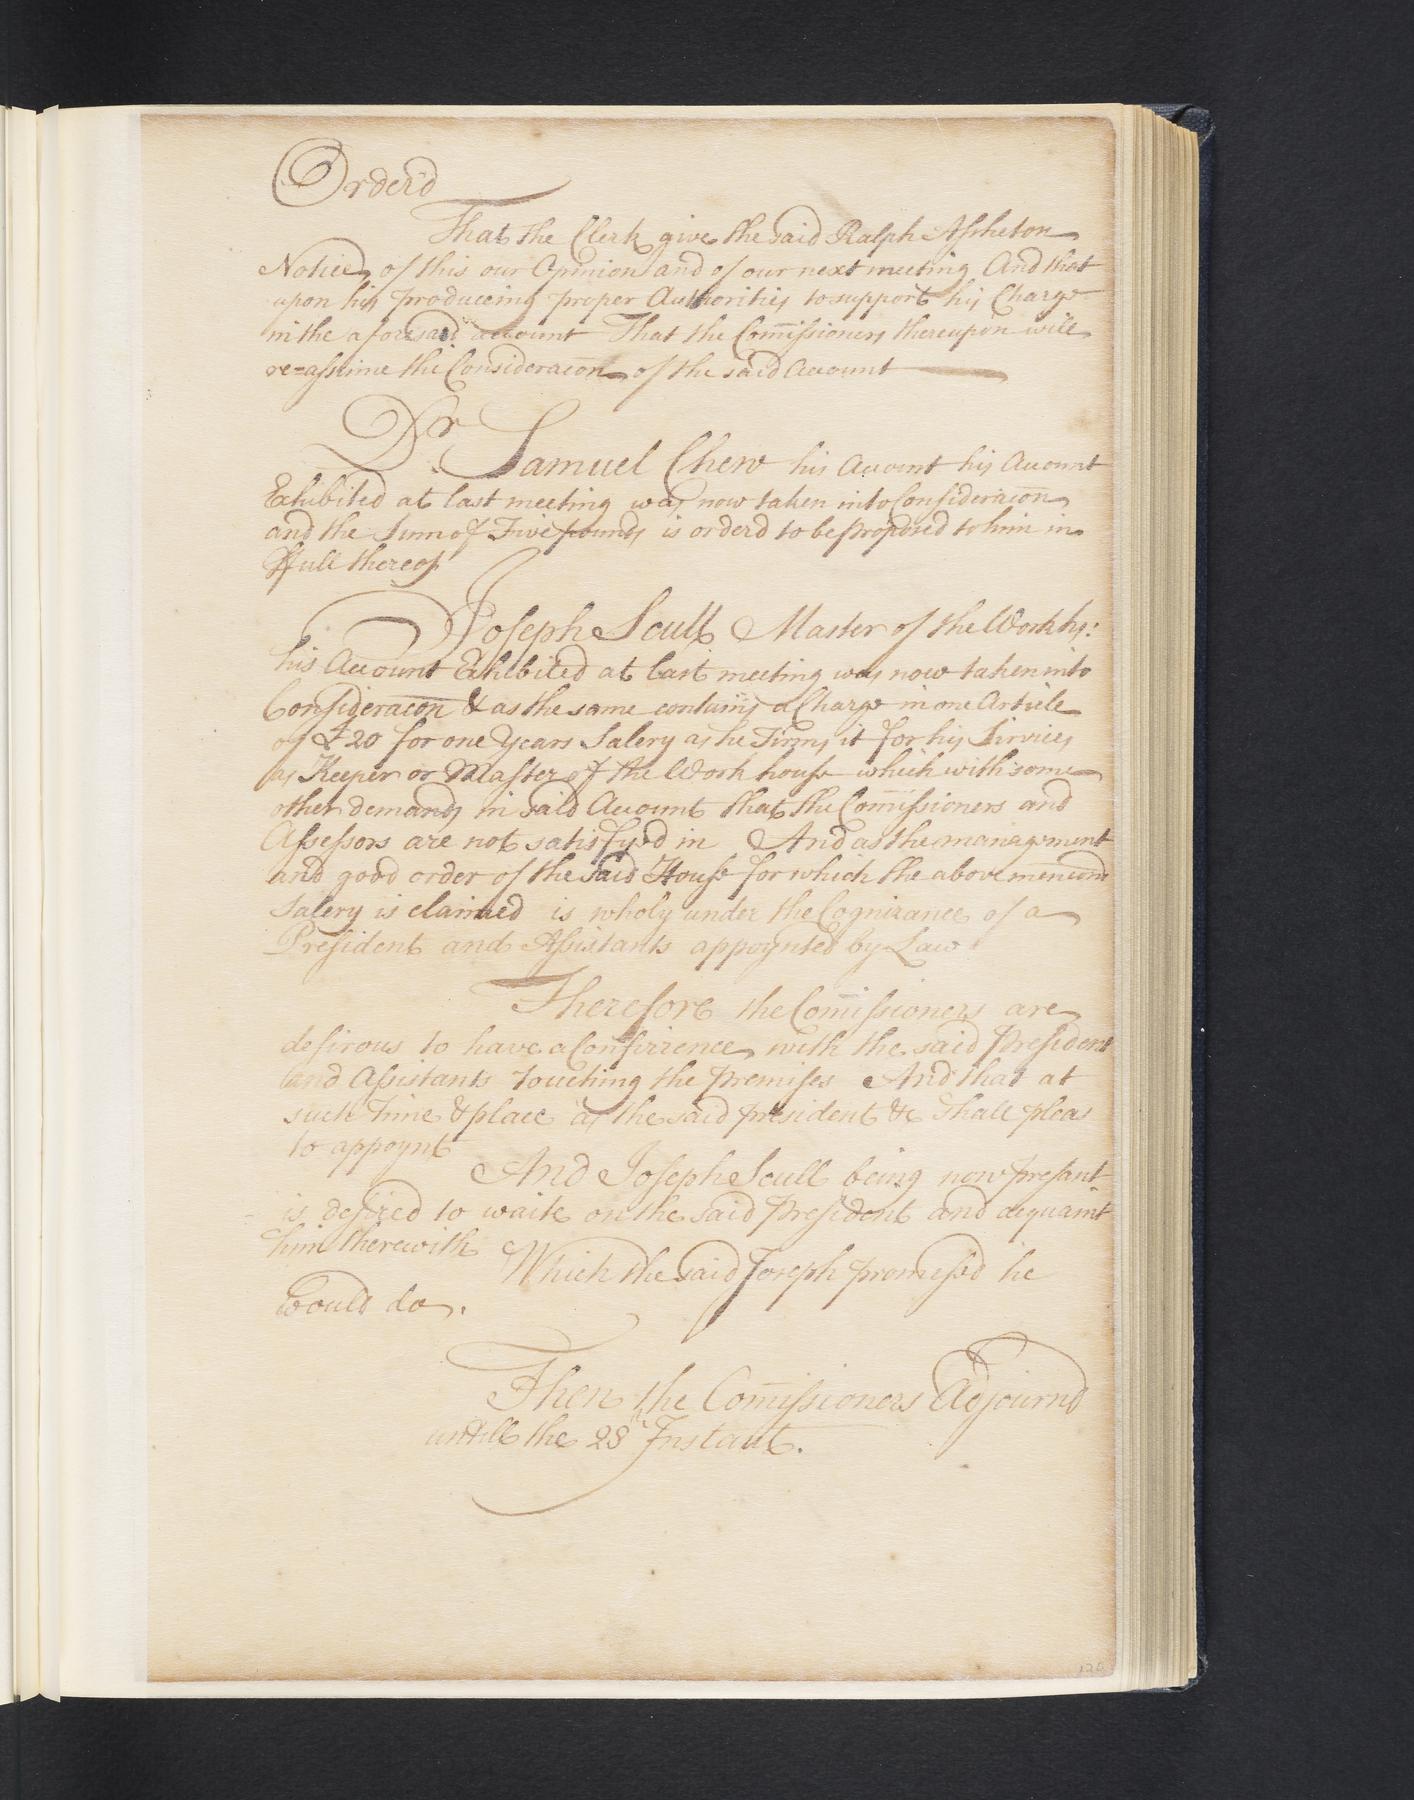 Order'd
That the Clerk give the said Ralph Assheton
Notice of this our Opinion and of our next meeting And that
upon his produceing proper Authorities to support his Charge
in the aforesaid account That the Com̄issioners thereupon will
re=assume the Consideracōn of the said Account
Dr. Samuel Chew his Account his Account
Exhibited at last meeting was now taken into Consideracōn
and the Sum of Five pounds is orderd to be Proposed to him in
ffull thereof
Joseph Scull Master of the Workhs:
his Account Exhibited at last meeting was now taken into
Consideracōn & as the same contains a Charge in one Article
of £20 for one Years Salery as he Tirms it for his Sirvices
as Keeper or Master of the Work house which with some
other demands in said Account that the Com̄issioners and
Assessors are not satisfyed in And as the management
and good order of the said House for which the above menc̄oned
Salery is claimed is wholy under the Cognizance of a
President and Assistants appoynted by Law
Therefore the Com̄issioners are
desirous to have a Confirrence with the said President
and Assistants Touching the Premises And that at
such Time & place as the said president &c Shall pleas
to appoynt
And Joseph Scull being now presant
is desired to waite on the said President and acquaint
him therewith Which the said Joseph promessed he
Would do.
Then the Com̄issioners Adjournd
untill the 28th Instant.